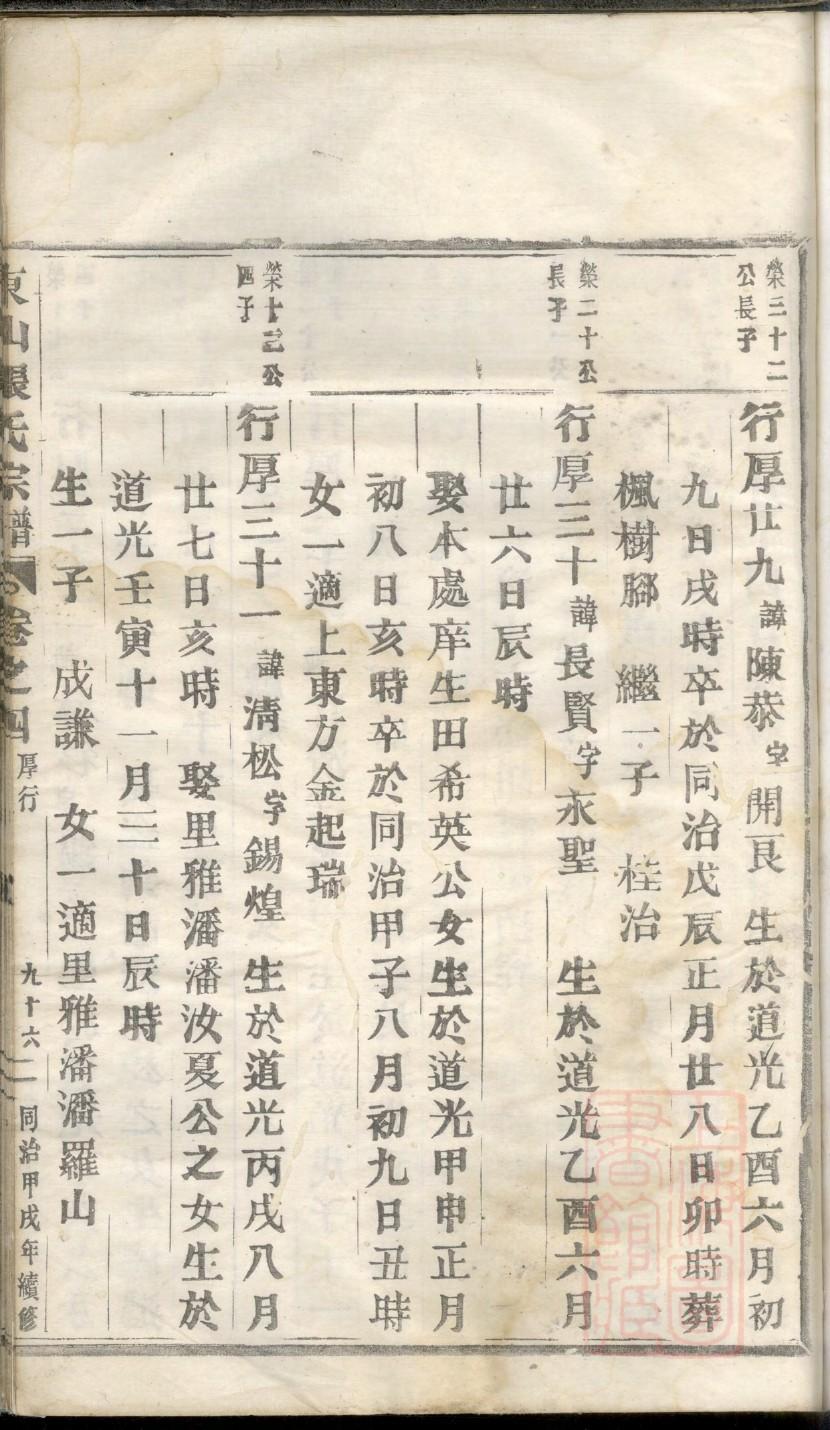 榮三十二
公長子
行厚廿九諱陳恭字開艮 生於道光乙酉六月初
九日戌時卒於同治戊辰正月廿八日卯時葬
楓樹腳 繼一子 桂治
榮二十公
長子
行厚三十諱長賢字永聖 生於道光乙酉六月
廿六日辰時
娶本處庠生田希英公女生於道光甲申正月
初八日亥時卒於同治甲子八月初九日丑時
女一適上東方金起瑞
榮十三公
四子
行厚三十一諱清松字錫煌 生於道光丙戌八月
廿七日亥時 娶里雅潘潘汝夏公之女生於
道光壬寅十一月三十日辰時
生一子 成謙 女一適里雅潘潘羅山
東山張氏宗譜 卷之四 厚行 九十六 同治甲戌年續修